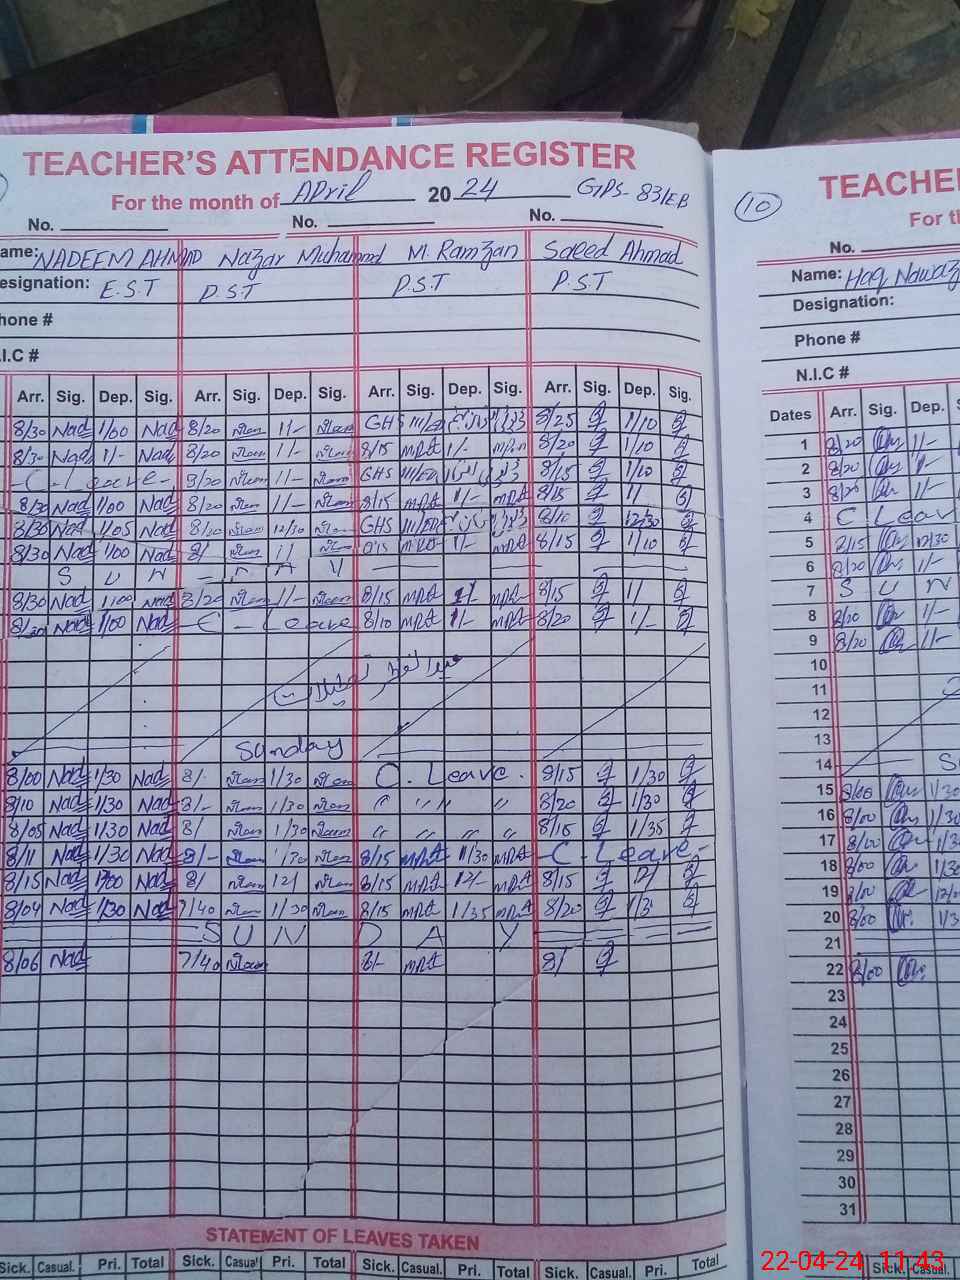 TEACHER'S ATTENDANCE REGISTER
For the month of April 2024 GPS-83/EB
No. No. No.
ame: NADEEM AHMAD Nazar Muhammad M. Ramzan Saeed Ahmad
esignation: E.S.T P.S.T P.S.T P.S.T
hone #
.I.C #
Arr. Sig. Dep. Sig. Arr. Sig. Dep. Sig. Arr. Sig. Dep. Sig. Arr. Sig. Dep. Sig.
8/30 Nad 1/00 Nad 8/20 1/- GHS 8/25 1/10
8/30 Nad 1/- Nad 8/20 1/- 8/15 MRA 1/- MRA 8/20 1/10
-C-Leave- 8/20 1/- GHS 8/15 1/10
8/30 Nad 1/00 Nad 8/20 1/- 8/15 MRA 1/- MRA 8/15 1/
8/30 Nad 1/05 Nad 8/20 12/30 GHS 8/10 12/30
8/30 Nad 1/00 Nad 8/ 1/ 8/15 MRA 1/- MRA 8/15 1/10
S U N - D A Y
8/30 Nad 1/00 Nad 8/20 1/- 8/15 MRA 1/- MRA 8/15 1/
Nad 1/00 Nad C-Leave 8/10 MRA 1/- MRA 8/20 1/-
عید الفطر تعطیلات
Sunday
8/00 Nad 1/30 Nad 8/- 1/30 C. Leave. 8/15 1/30
8/10 Nad 1/30 Nad 8/- 1/30 " " " " 8/20 1/30
8/05 Nad 1/30 Nad 8/ 1/30 " " " " 8/15 1/35
8/11 Nad 1/30 Nad 8/- 1/30 8/15 MRA 1/30 MRA -C. Leave-
8/15 Nad 12/00 Nad 8/ 12/ 8/15 MRA 12/- MRA 8/15 12/
8/04 Nad 1/30 Nad 7/40 1/30 8/15 MRA 1/35 MRA 8/20
S U N D A Y
8/06 Nad 7/40 8/- MRA 8/
STATEMENT OF LEAVES TAKEN
Sick. Casual. Pri. Total Sick. Casual Pri. Total Sick. Casual. Pri. Total Sick. Casual. Pri. Total
10 TEACHE
For t
No.
Name: Haq Nawaz
Designation:
Phone #
N.I.C #
Dates Arr. Sig. Dep.
1 8/20 1/-
2 8/20 1-
3 8/20 1/-
4 C Leav
5 8/15 12/30
6 8/20 1/-
7 S U N
8 8/20 1/-
9 8/20 1/-
10
11
12
13
14 S
15 8/00 1/30
16 8/00 1/30
17 8/00 1/3
18 8/00 1/30
19 8/00 12/0
20 8/00 1/3
21
22 8/00
23
24
25
26
27
28
29
30
31
Sick. Casual.
22-04-24 11:43